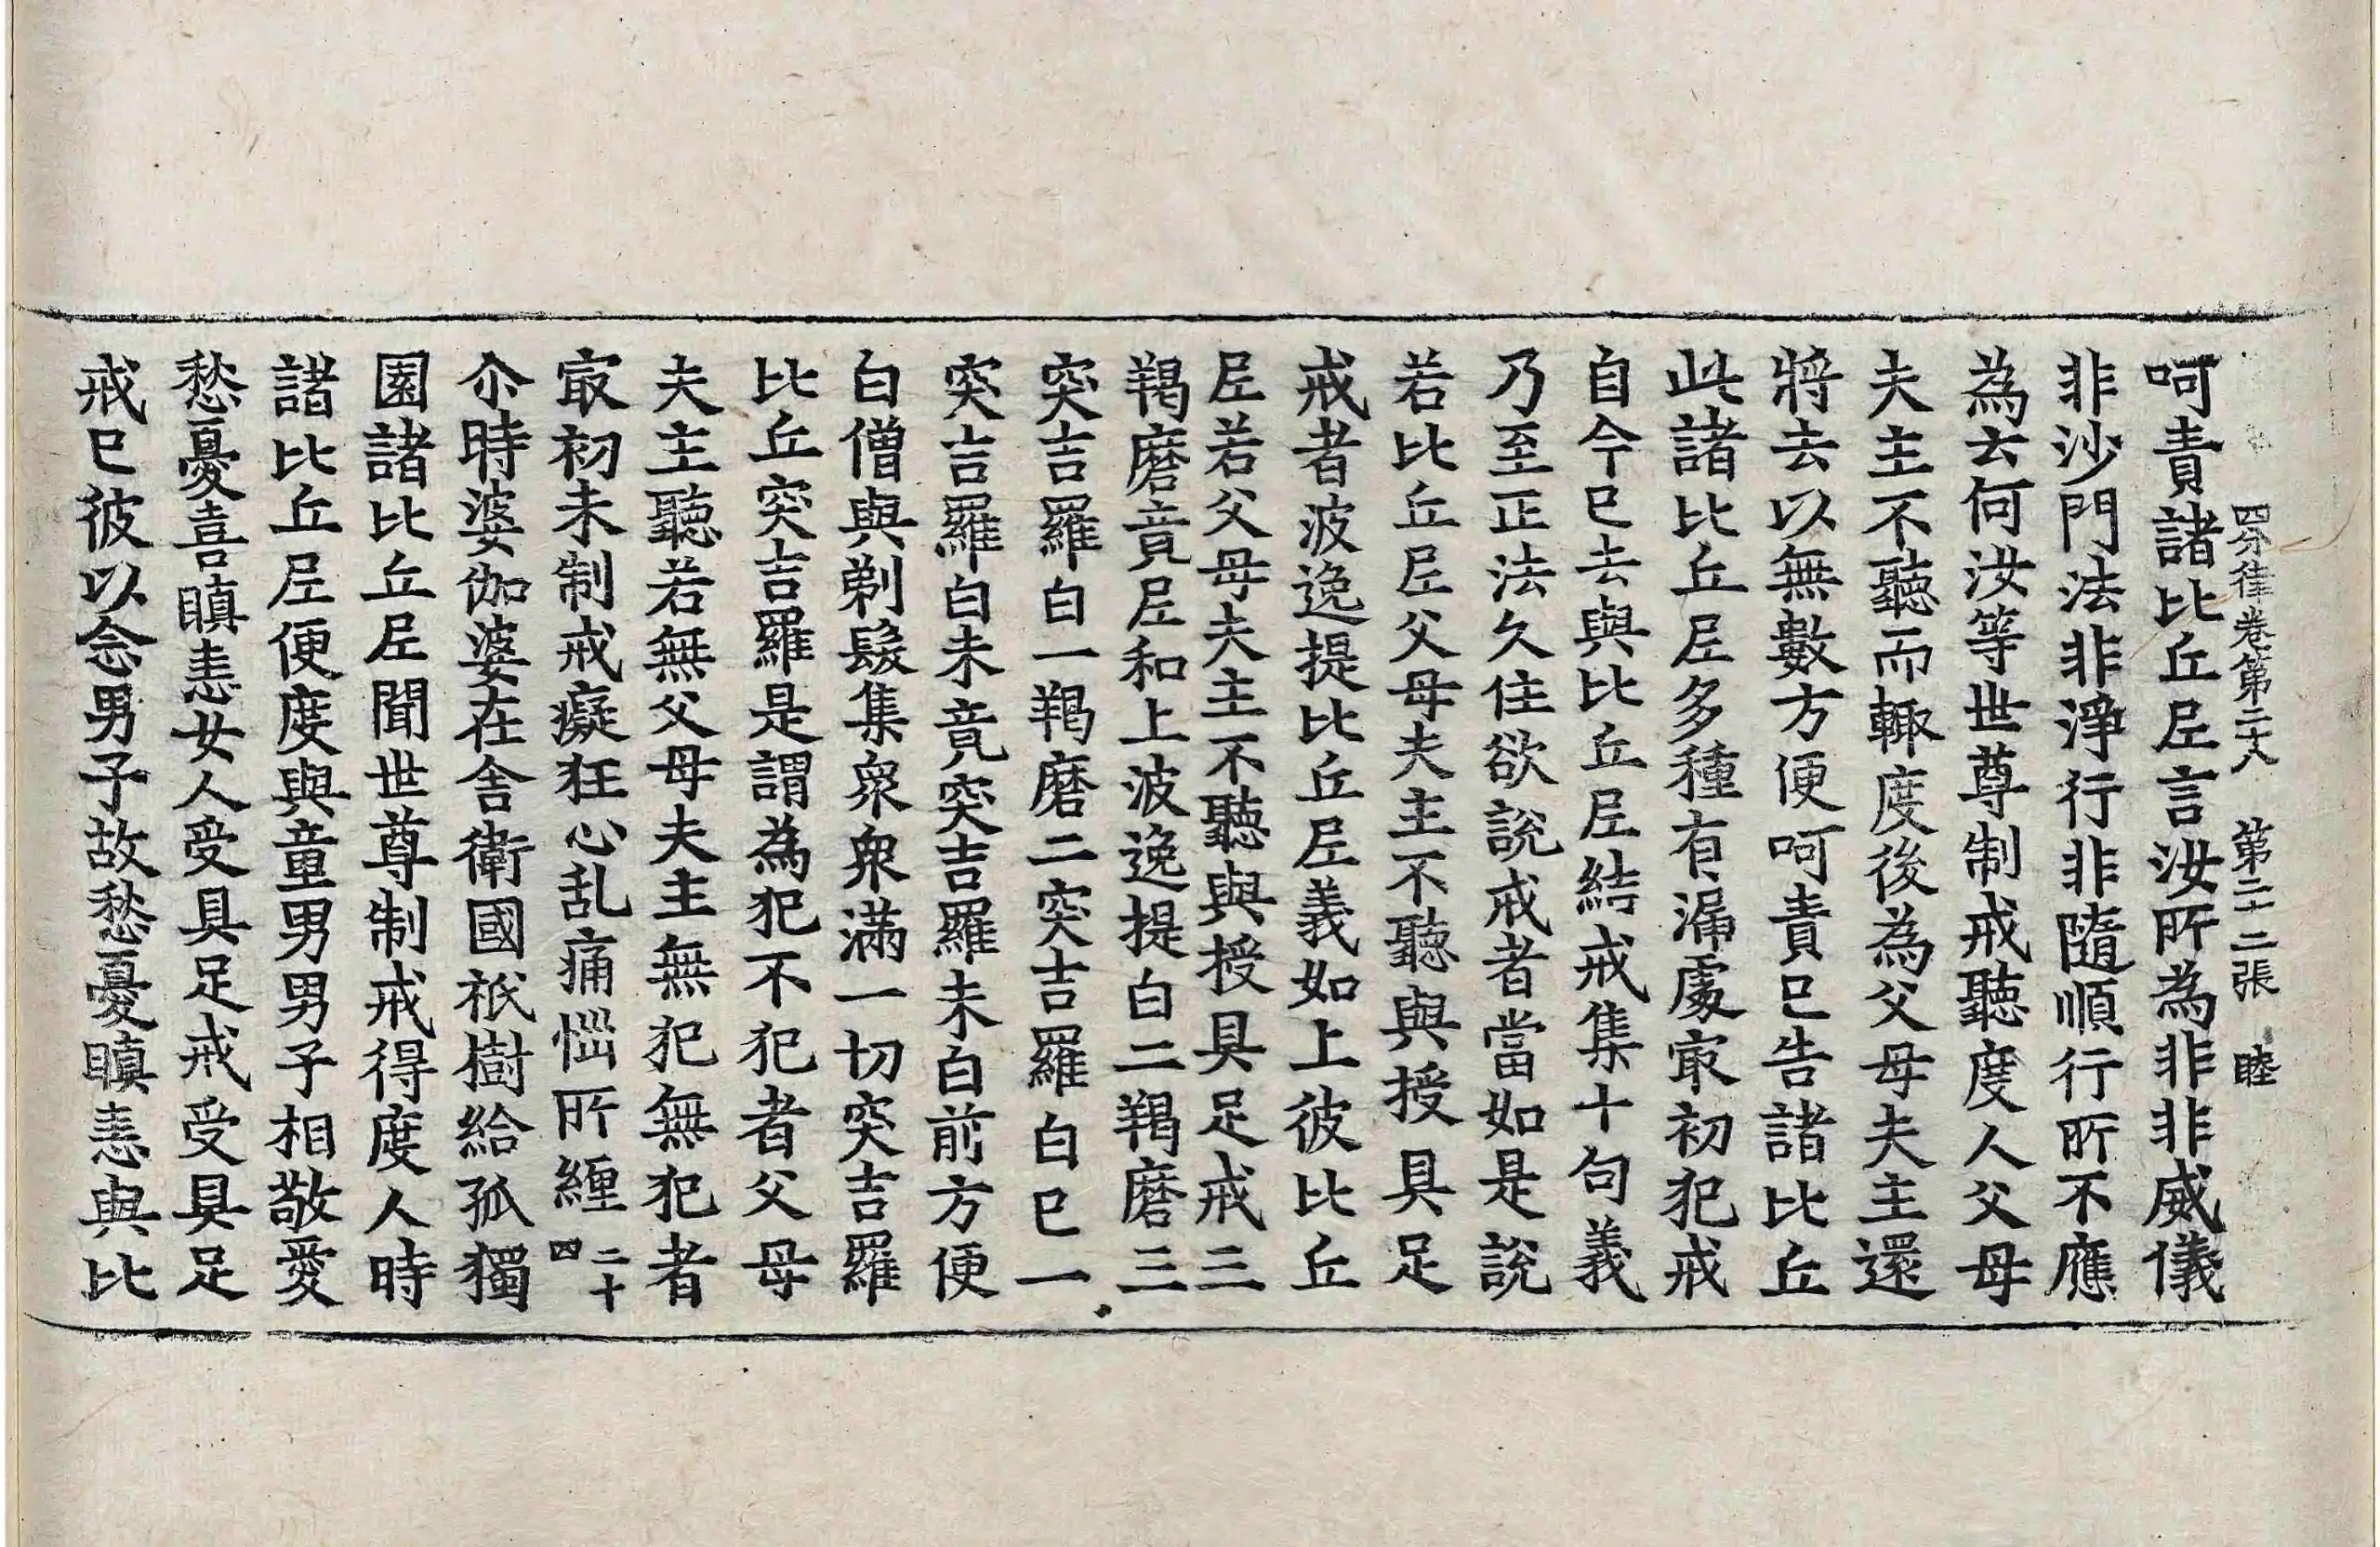 四分律卷第二十八　第二十二張　睦
呵責諸比丘尼言汝所為非非威儀
非沙門法非淨行非隨順行所不應
為云何汝等世尊制戒聽度人父母
夫主不聽而輙度後為父母夫主還
將去以無數方便呵責已告諸比丘
此諸比丘尼多種有漏處冣初犯戒
自今已去與比丘尼結戒集十句義
乃至正法久住欲說戒者當如是說
若比丘尼父母夫主不聽與授具足
戒者波逸提比丘尼義如上彼比丘
尼若父母夫主不聽與授具足戒三
羯磨竟尼和上波逸提白二羯磨三
突吉羅白一羯磨二突吉羅白已一
突吉羅白未竟突吉羅未白前方便
白僧與剃髮集衆衆滿一切突吉羅
比丘突吉羅是謂為犯不犯者父母
夫主聽若無父母夫主無犯無犯者
冣初未制戒癡狂心乱痛惱所纏二十四
尒時婆伽婆在舍衛國祇樹給孤獨
園諸比丘尼聞世尊制戒得度人時
諸比丘尼便度與童男男子相敬愛
愁憂喜瞋恚女人受具足戒受具足
戒已彼以念男子故愁憂瞋恚與比